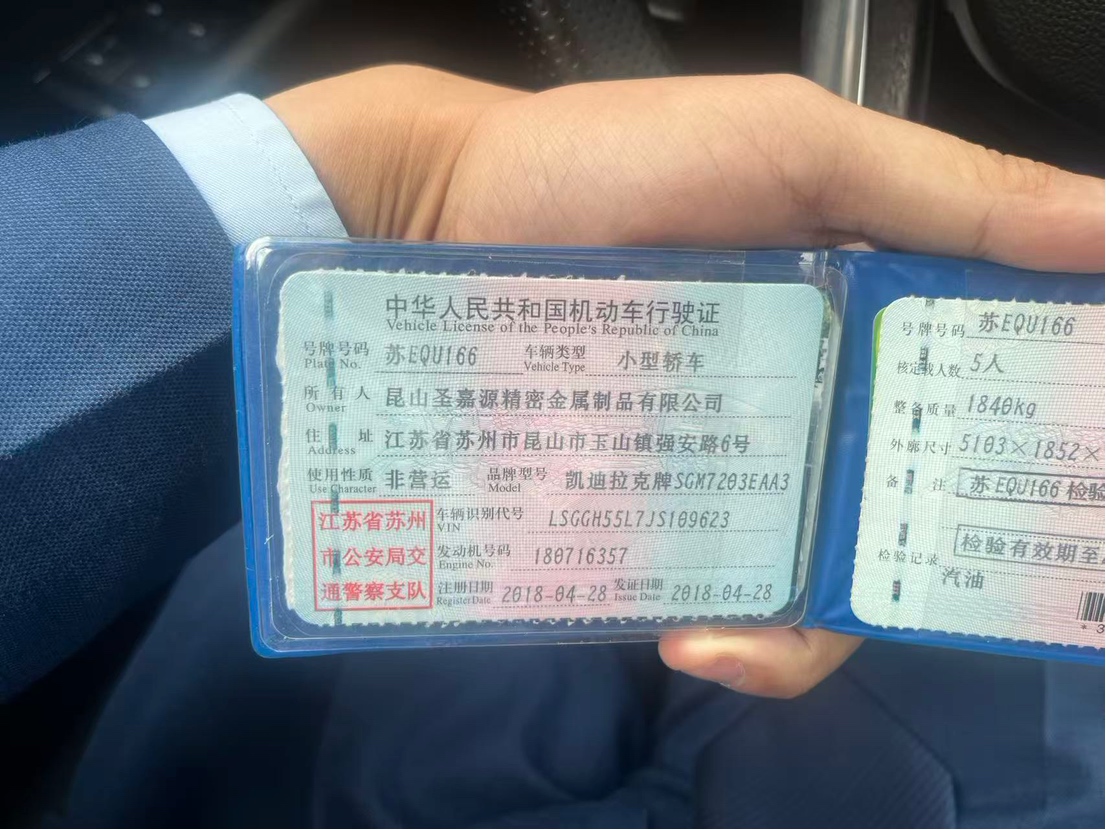 中华人民共和国机动车行驶证
Vehicle License of the People's Republic of China
号牌号码 苏EQU166 车辆类型 小型轿车
Plate No. Vehicle Type
所有人 昆山圣嘉源精密金属制品有限公司
Owner
住址 江苏省苏州市昆山市玉山镇强安路6号
Address
使用性质 非营运 品牌型号 凯迪拉克牌SGM7203EAA3
Use Character Model
江苏省苏州
市公安局交
通警察支队
车辆识别代号 LSGGH55L7JS109623
VIN
发动机号码 180716357
Engine No.
注册日期 2018-04-28 发证日期 2018-04-28
Register Date Issue Date
号牌号码 苏EQU166
核定载人数 5人
整备质量 1840kg
外廓尺寸 5103×1852×
备注 苏EQU166 检验
检验有效期至
检验记录
汽油
* 3